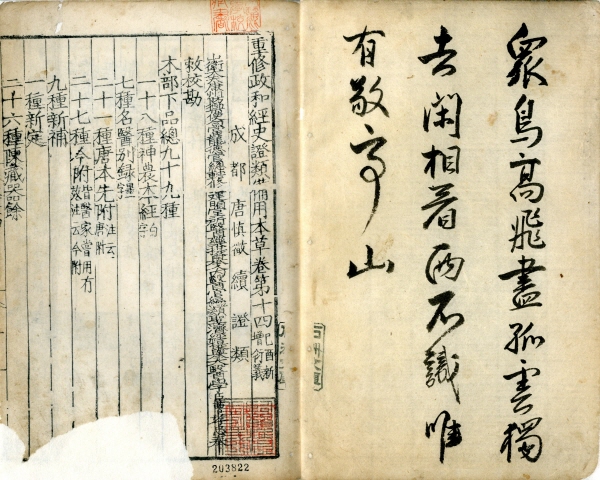 衆鳥高飛盡孤雲獨
去閑相看兩不識唯
有敬亭山
重修政和經史證類備用本草卷第十四 己酉新增衍義
成都唐慎微續證類
敕校勘
木部下品總九十九種
一十八種神農本經
七種名醫別錄
二十一種唐本先附 注云唐附
二十七種今附 皆醫家嘗用有效注云今附
九種新補
一種新定
二十六種陳藏器餘
203822